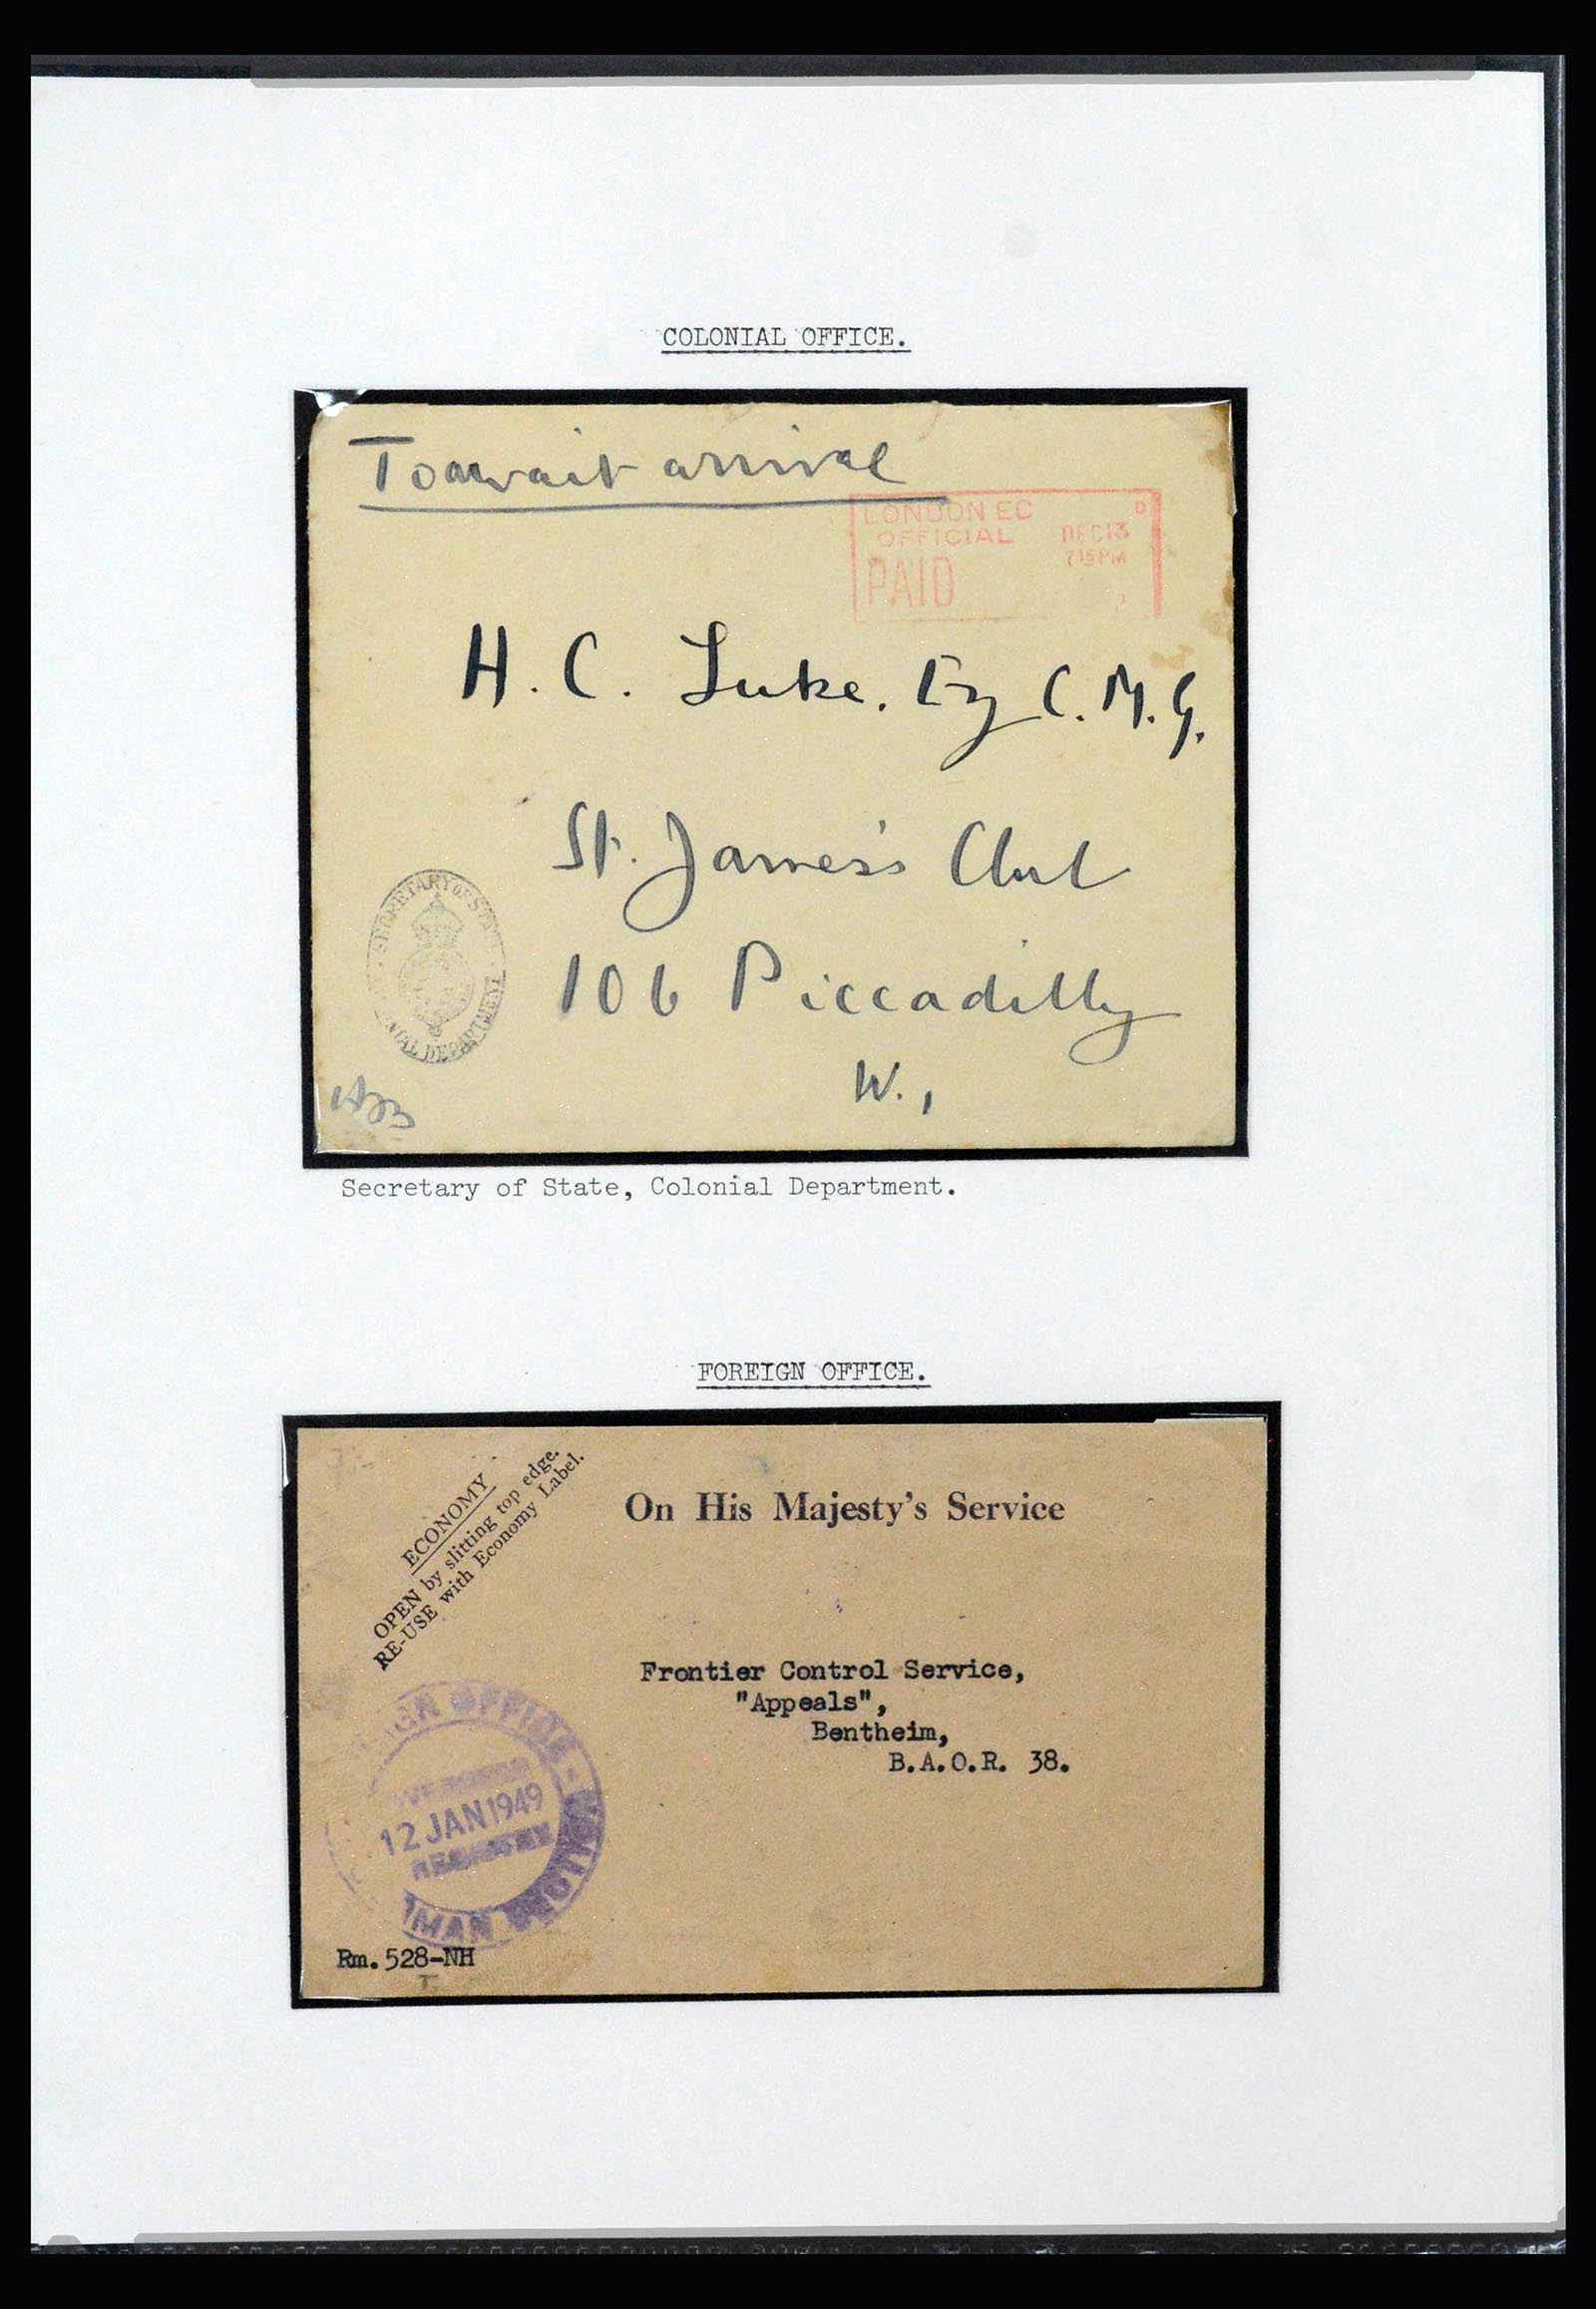 COLONIAL OFFICE.
To await arrival
LONDON EC D
OFFICIAL DEC 13
PAID 7 15 PM
H. C. Luke. Esq C. M. G.
St. James's Club
106 Piccadilly
W.,
SECRETARY OF STATE
COLONIAL DEPARTMENT
Secretary of State, Colonial Department.
FOREIGN OFFICE.
ECONOMY
OPEN by slitting top edge.
RE-USE with Economy Label.
On His Majesty's Service
Frontier Control Service,
"Appeals",
Bentheim,
B.A.O.R. 38.
FOREIGN OFFICE
12 JAN 1949
REGISTRY
Rm. 528-NH